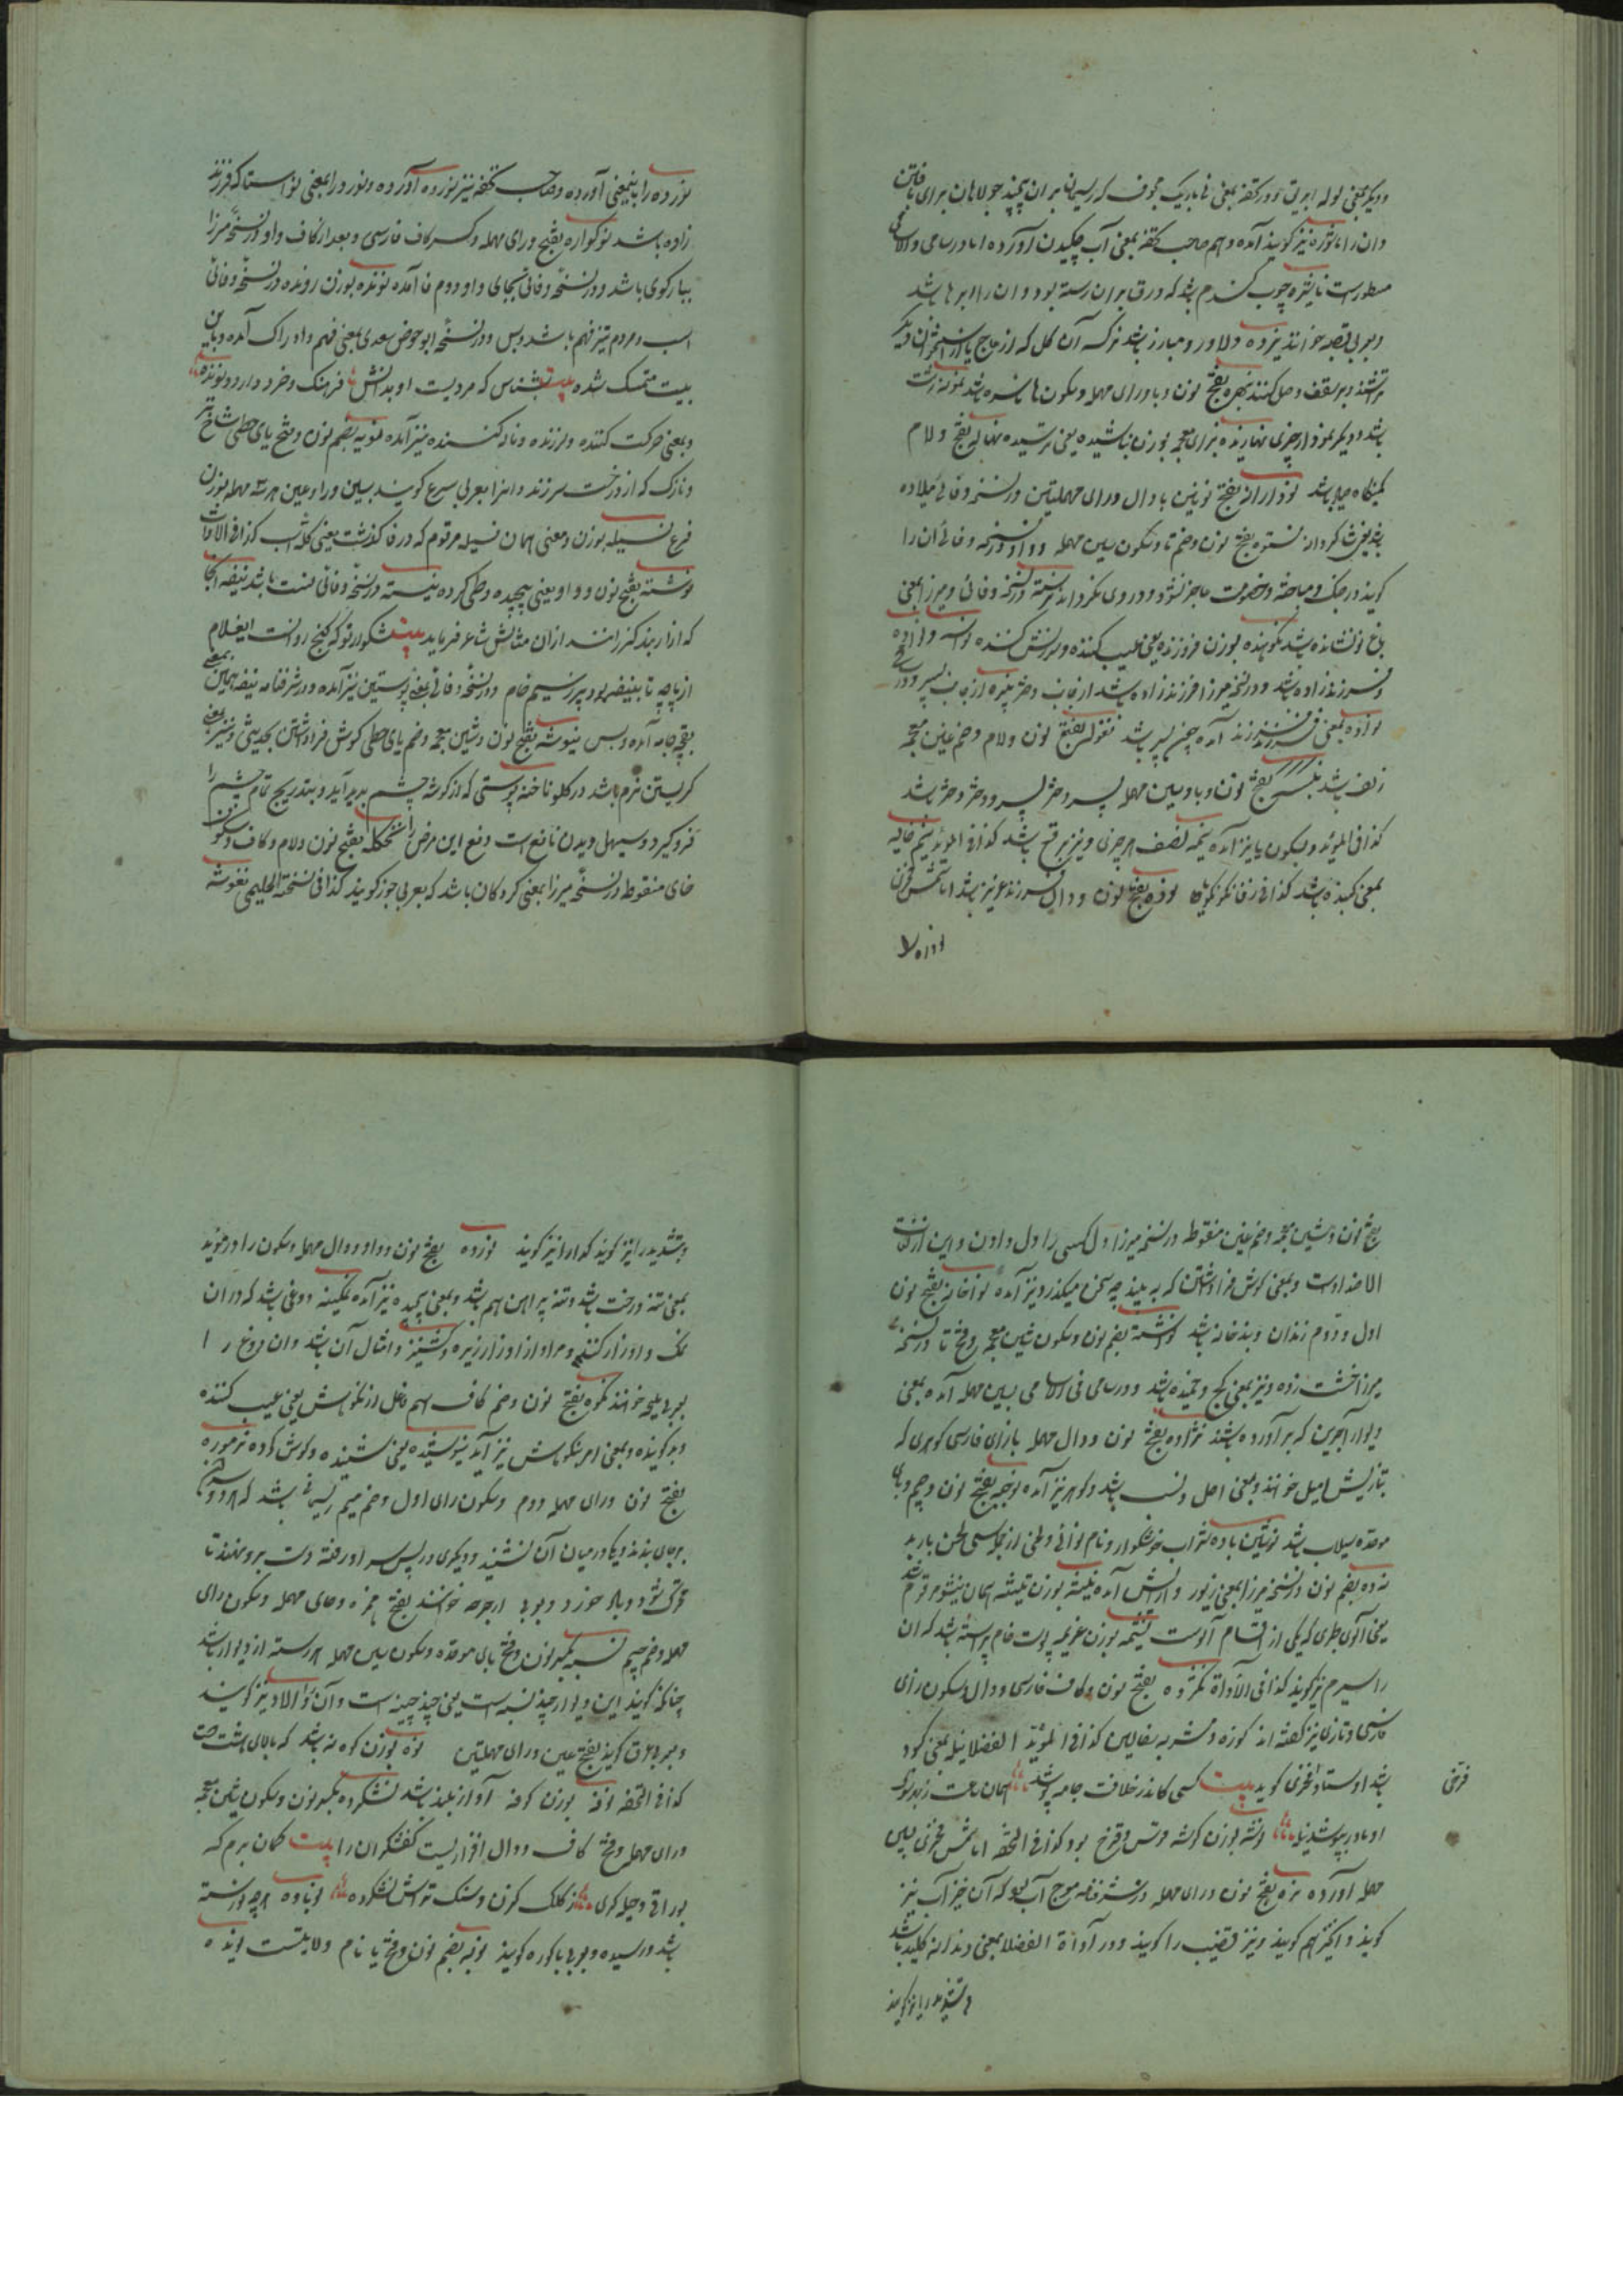 ودیگر بمعنی لوله ابریق و در تحفه بمعنی نا باریک مجوف که ریسمان بران پیچند جولاهان برای بافتن
و ان را ماسوره نیز گویند آمده و هم صاحب تحفه بمعنی آب چکیدن آورده اما در سامی و الاسامی
مسطورست نایژه چوب گندم باشد که ورق بران رسته بود و ان را ابر ها باشد
و بعربی قصبه خوانند نبرده دلاور و مبارز باشد نرگسه آن گل که از عاج یا از استخوان دیگر
تراشند و بر سقف وصل کنند نبهره بفتح نون و با و رای مهمله و سکون ها ناسره باشد نمونه زشت
باشد و دیگر نمودار چیزی نهازیده بزای معجمه بوزن نباشیده یعنی ترسیده نهاله بفتح و لام
کمینگاه صیاد باشد نودارانه بفتح نونین با دال و رای مهملتین در نسخه وفائی میلاده
یعنی شاگردانه نستوه بفتح نون و ضم تا و سکون سین مهمله و واو در نسخه وفائی آن را
گویند در جنگ و مباحثه و خصومت عاجز نشود و روی نگرداند نشسته در نسخه وفائی و میرزا بمعنی
باغ نو نشانده باشد نکوهنده بوزن فروزنده یعنی عیب کننده و سرزنش کننده نواسه و نواده
فرزند زاده باشد و در نسخه میرزا فرزند زاده باشد از جانب دختر نبیره از جانب پسر و در نسخه
نواده بمعنی فرزند فرزند آمده چون پسر باشد نغوله بفتح نون و لام و ضم غین معجمه
زلف باشد نبسه بفتح نون و با و سین مهمله پسر دختر پسر و دختر دختر باشد
کذا فی المؤید و بسکون با نیز آمده نیمه نصف هر چیزی و نیز برقع باشد کذا فی المؤید نیم خایه
بمعنی گنبده باشد کذا فی زفان گویا نوده بفتح نون و دال فرزند عزیز باشد اما شمس فخری
نوده را
نورده را باینمعنی آورده و صاحب تحفه نیز نورده آورده و نورد را بمعنی نواسه‌تا که فرزند
زاده باشد نوگواره بفتح و رای مهمله و کسر کاف فارسی و بعد از کاف واو در نسخه میرزا
بسیار گوی باشد و در نسخه وفائی بجای واو دوم فا آمده نونده بوزن رونده در نسخه وفائی
اسب و مردم تیز فهم باشد و بس و در نسخه ابو حفص سعدی بمعنی فهم و ادراک آمده و باین
بیت متمسک شده بیت بشناس که مردیست او بدانش فرهنگ و خرد دارد و نونده
و بمعنی حرکت کننده و لرزنده و ناله کننده نیز آمده نویه بضم نون و فتح یای حطی شاخ تر
و نازک که از درخت سر زند و انرا بعربی سرع گویند بسین و را و عین هر سه مهمله بوزن
فرع نسیله بوزن و معنی همان فسیله مرقوم که در فا گذشت یعنی گله اسب کذا فی الاداة
نوشته بفتح نون و واو یعنی پیچیده و طی کرده نیسته در نسخه وفائی نیست باشد نیفه آنجا
که ازاربند گذرانند از آن مثالش شاعر فرماید بیت شکوار تو که گنج روانست ایغلام
از پاچه تا بنیفه بود پر ز سیم خام و در نسخه وفائی بمعنی پوستین نیز آمده و در شرفنامه نیفه بهمین معنی
بقچه جامه آمده و بس نیوشه بفتح نون و شین معجمه و ضم یای حطی گوش فراداشتن بحدیثی و نیز بمعنی
گریستن نرم باشد در گلو ناخنه پوستی که از گوشه چشم بدر آید و بتدریج تمام چشم را
فرو گیرد و سهیل دیدن نافع است دفع این مرض را نخکله بفتح نون و لام و کاف و سکون
خای منقوط در نسخه میرزا بمعنی گردکان باشد که بعربی جوز گویند کذا فی نسخة الحلیمی نغوشه
بفتح نون و شین معجمه و ضم غین منقوط در نسخه میرزا اول کسی را دل دادن و این از لغات
الاضدادست و بمعنی گوش فراداشتن که ببیند چه سخن میگذرد نیز آمده نواخانه بفتح نون
اول و دوم زندان و بندخانه باشد نوشته بضم نون و سکون شین معجمه و فتح تا در نسخه
میرزا خشت زده و نیز بمعنی کج و خمیده باشد و در سامی فی الاسامی بسین مهمله آمده بمعنی
دیوار آجرین که بر آورده باشند نژاده بفتح نون و دال مهمله بازای فارسی گوهری که
بتازیش اصیل خوانند و بمعنی اصل و نسب باشد و گوهر نیز آمده نوجبه بفتح نون و جیم و بای
موحده سیلاب باشد نوشین باده شراب خوشگوار و نام نوائی و لحنی از جمله سی لحن باربد
نده بضم نون در نسخه میرزا بمعنی زیور و آرایش آمده نیشه بوزن تیشه همان نیشو مرقوم شد
یعنی آلوی طبری که یکی از اقسام آلوست نیمه بوزن عزیمه پوست خام پیراسته باشد که ان
را سیرم نیز گویند کذا فی الاداة نکژده بفتح نون و کاف فارسی و دال و سکون زای
فارسی و تازی نیز گفته اند کوزه و مشربه سفالین کذا فی المؤید الفضلا نیله بمعنی کبود
باشد اوستاد فخری گوید بیت کسی کاندر خلافت جامه پوشد همان ساعت ز بهر نوک فرخی
او مادر بپوشد نیله نوشه بوزن گوشه خوش و فرخ بود کذا فی التحفه اما شمس فخری بسین
مهمله آورده نره بفتح نون و رای مهمله در شرفنامه موج آب بود که آن خیزآب نیز
گویند و آکنژ هم گویند و نیز قضیب را گویند و در آداة الفضلا بمعنی دندانه کلید باشد
و بتشدید را نیز گویند
و بتشدید را نیز گویند که انرا نیز گویند نورده بفتح نون و واو و دال مهمله و سکون را در مؤید
بمعنی تنه درخت باشد و تنه پیراهن هم باشد و بمعنی پیچیده نیز آمده نمکینه دوغی باشد که در ان
نمک و اوزار کنند و مراد از اوزار زیره و کشنیز و امثال آن باشد و ان دوغ را
بعربی ملیحه خوانند نکوه بفتح نون و ضم کاف اسم فاعل از نکوهش یعنی عیب کننده
و بدگوینده و بمعنی امر بنکوهش نیز آید نیوشیده یعنی شنیده و گوش کرده نرموره
بفتح نون و رای مهمله دوم و سکون رای اول و ضم میم ریسمانی باشد که هر دو سرش
بر جای بندند و یکی در میان آن نشیند و دیگری در پس سر او رفته دست برو نهند تا
حرکتی شود و باد خورد و بعربی ارجوحه خوانند بفتح همزه و حای مهمله و سکون رای
مهمله و ضم جیم نسبه بکسر نون و فتح بای موحده و سکون سین مهمله هر رسته از دیوار باشد
چنانکه گویند این دیوار چند نسبه است یعنی چند چینه است و آن را لاد نیز گویند
و بعربی عرق گویند بفتح عین و رای مهملتین نوه بوزن کوه نه باشد که بالای هشت است
کذا فی التحفه نوفه بوزن کوفه آواز بلند باشد نشگرده بکسر نون و سکون شین معجمه
و رای مهمله و فتح کاف و دال افزاریست کفشگران را بیت گمان برم که
بوراقی و جیله گری ز کلک کردن و سنگ تراش نشگرده نوباوه هر چه نورسته
باشد و رسیده و بعربی باکوره گویند نوبه بضم نون و فتح با نام ولایتیست نوینده